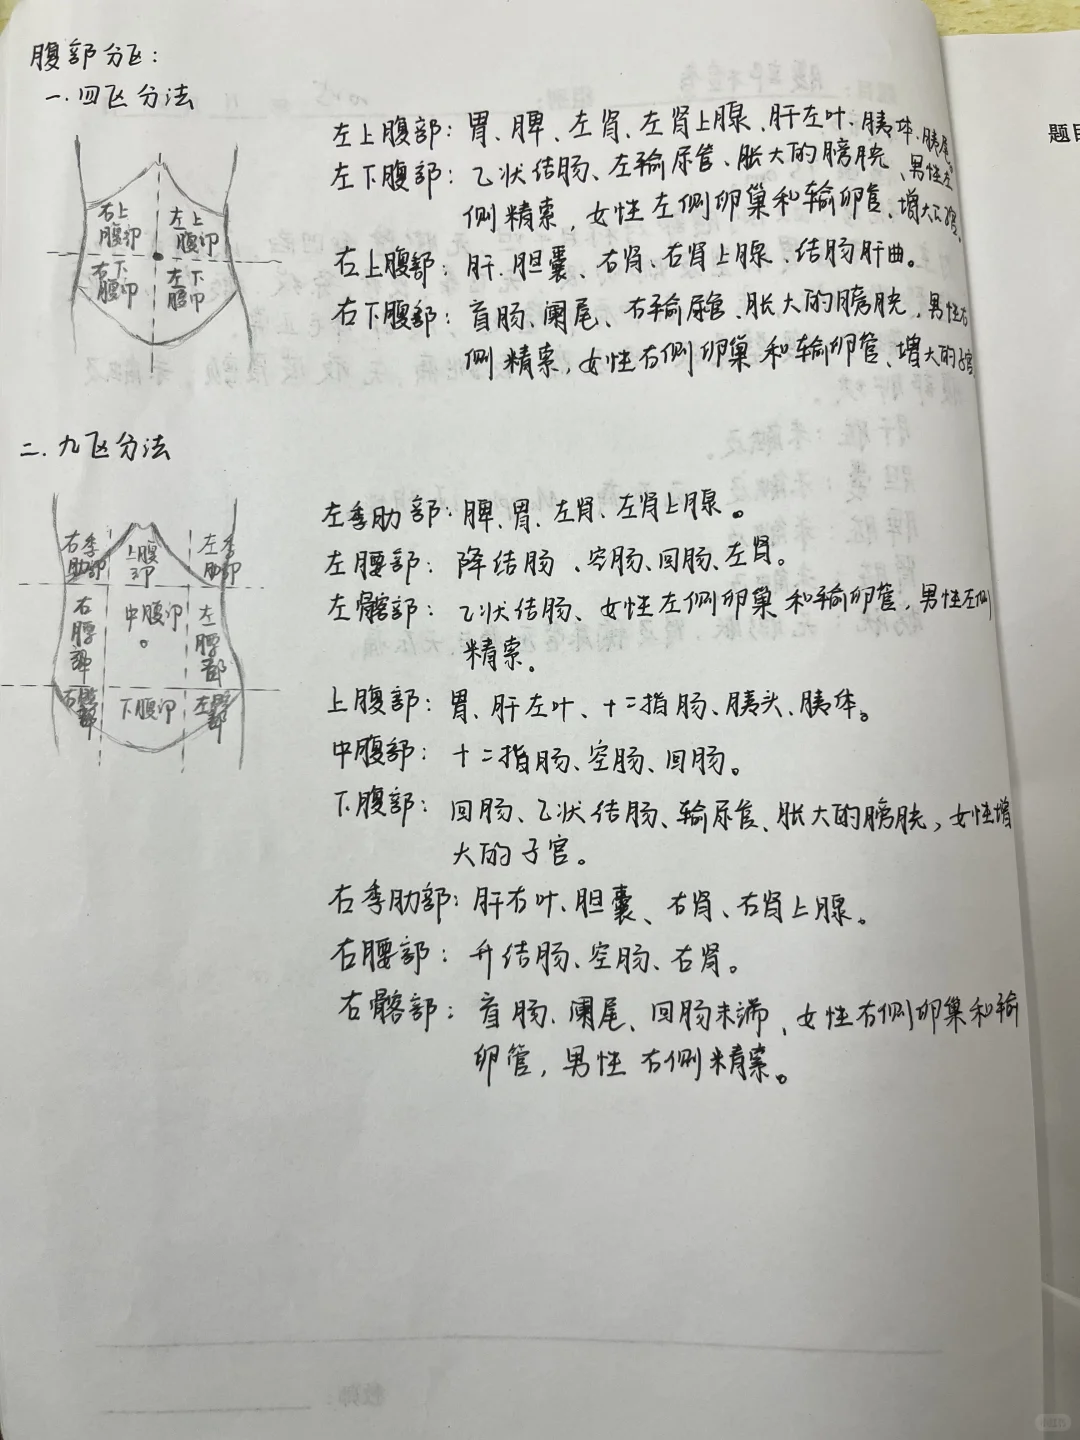 腹部分区:
一.四区分法
左上腹部:胃、脾、左肾、左肾上腺、肝左叶、胰体、胰尾。
左下腹部:乙状结肠、左输尿管、胀大的膀胱、男性左
侧精索,女性左侧卵巢和输卵管、增大子宫。
右上腹部:肝、胆囊、右肾、右肾上腺、结肠肝曲。
右下腹部:盲肠、阑尾、右输尿管、胀大的膀胱,男性右
侧精索,女性右侧卵巢和输卵管、增大的子宫
右上
腹卩
左上
腹卩
右下
腹卩
左下
腹卩
二.九区分法
左季肋部:脾、胃、左肾、左肾上腺。
左腰部:降结肠、空肠、回肠、左肾。
左髂部:乙状结肠、女性左侧卵巢和输卵管,男性左侧
精索。
上腹部:胃、肝左叶、十二指肠、胰头、胰体。
中腹部:十二指肠、空肠、回肠。
下腹部:回肠、乙状结肠、输尿管、胀大的膀胱,女性增
大的子宫。
右季肋部:肝右叶、胆囊、右肾、右肾上腺。
右腰部:升结肠、空肠、右肾。
右髂部:盲肠、阑尾、回肠末端、女性右侧卵巢和输
卵管,男性右侧精索。
右季
肋部
上腹
部
左季
肋部
右腰部
中腹卩
左腰部
右髂部
下腹卩
左髂部
题目